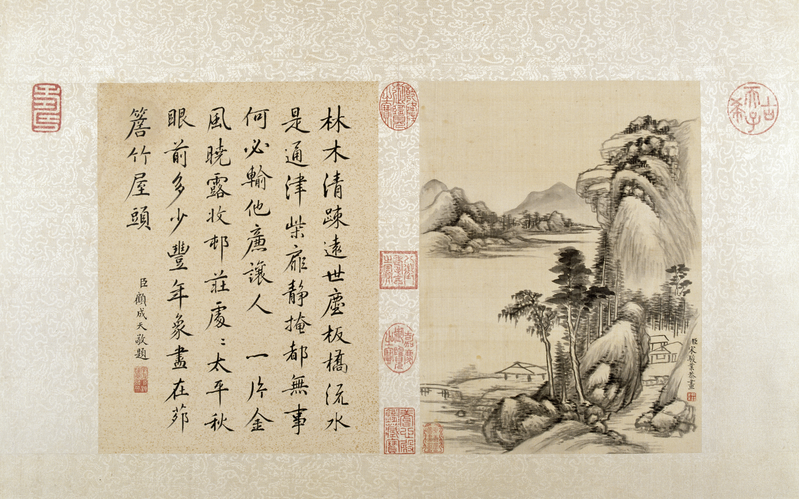 林木清疎遠世塵板橋流水
是通津柴扉静掩都無事
何必輸他廉讓人 一片金
風曉露收邨莊處〻太平秋
眼前多少豐年象盡在茆
簷竹屋頭
臣顧成天敬題
臣宋駿業恭畫